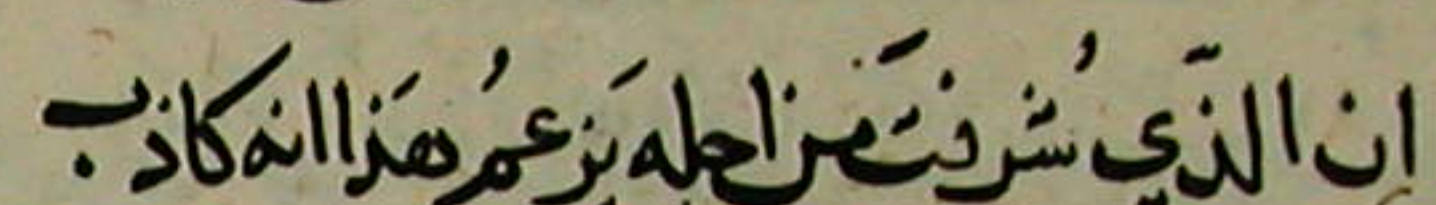 ان الذّي شُرفتَ من اجله يَزعمُ هَذا انه كاذب